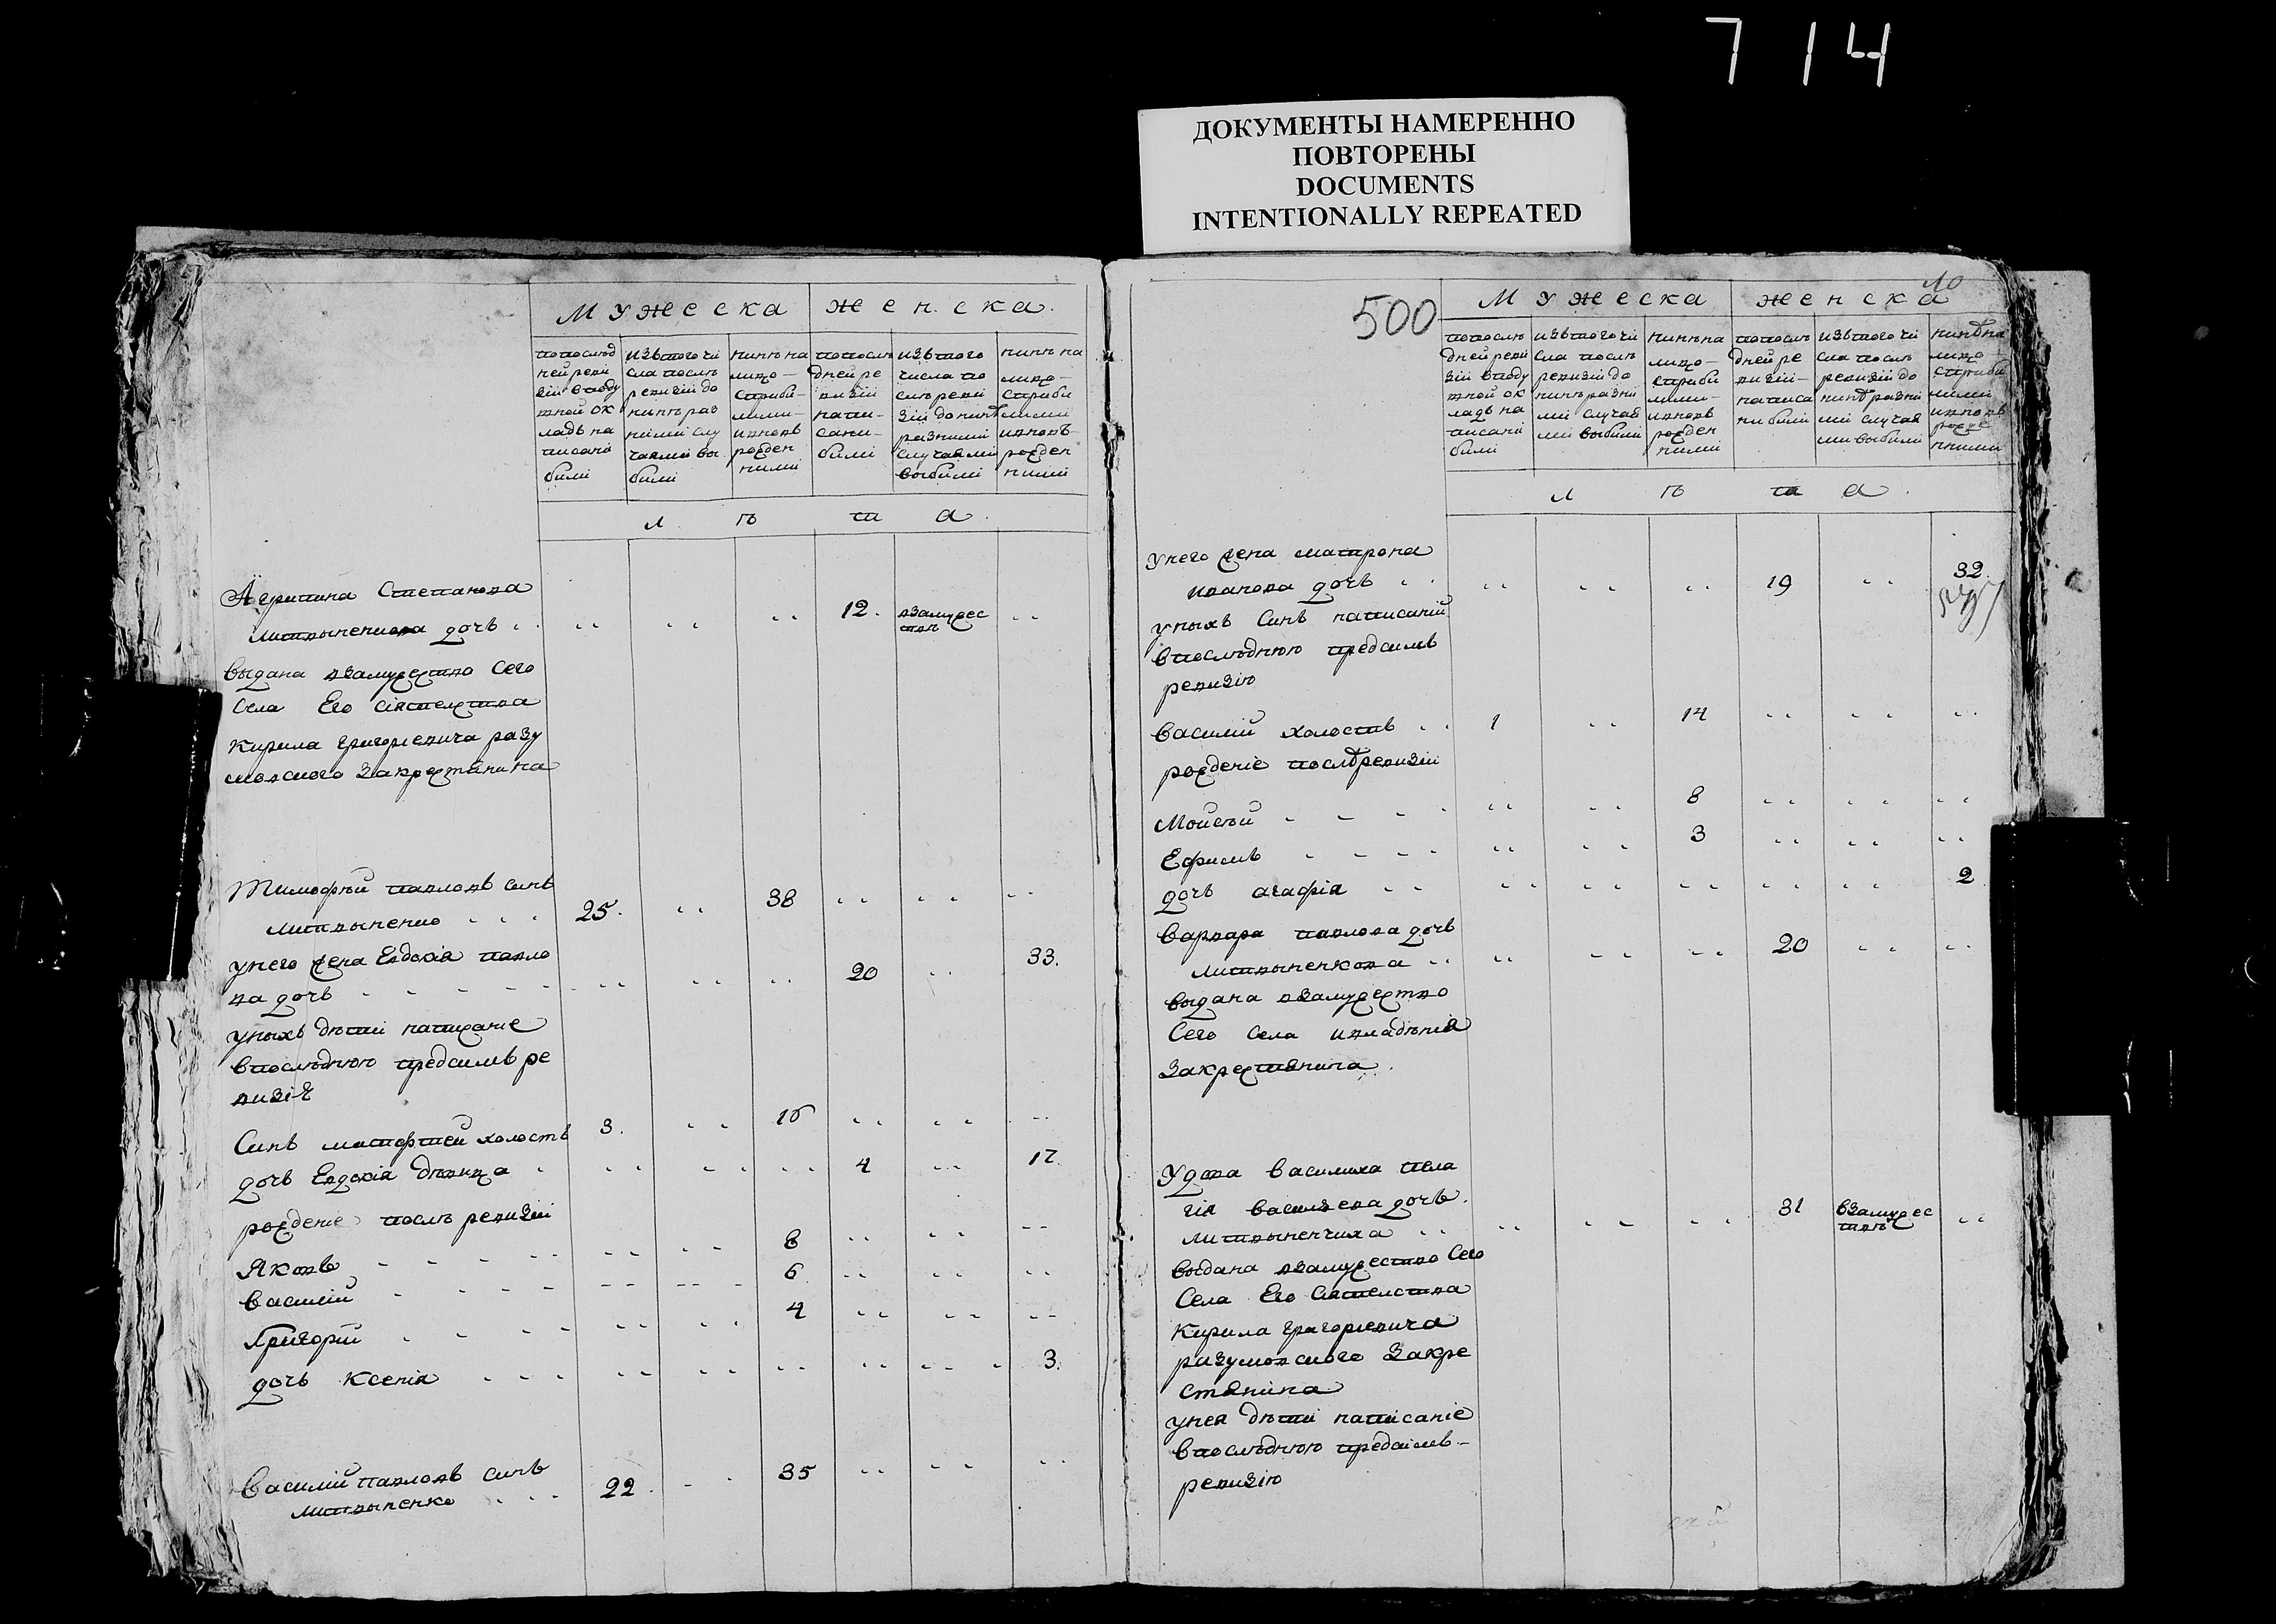 7 14
ДОКУМЕНТЫ НАМЕРЕННО
ПОВТОРЕНЫ
DOCUMENTS
INTENTIONALLY REPEATED
Мужеска
женска.
попослѣд
ней реви
зіи вподу
шной ок
ладъ на
писани
были
изътого чи
сла послѣ
ревизіи до
нинѣ раз
ними слу
чаями вы
были
нинѣ на
лицо
сприбы
лими
ивновъ
рожден
ними
попослѣ
дней ре
визіи
напи
сани
были
изътого
числа по
слѣ реви
зіи до нинѣ
разними
случаями
выбыли
нинѣ на
лицо
сприбы
лими
ивновъ
рожден
ними
л ѣ т а.
Агрипина Степанова
Литвыненкова дочь .. .. .. 12. взамужес
твѣ ..
выдана взамужество сего
села Его сіятельства
Кирила григориевича разу
мовского закрестянина
Тимофѣй павловъ синъ
литвыненко 25. .. 38 .. .. ..
унего жена Евдокія павло
ва дочь .. .. .. 20 .. 33.
унихъ дѣти написание
впослѣднюю предсимъ ре
визію
Синъ матфией холостъ 3. .. 16 .. .. ..
дочь Евдокія дѣвица .. .. .. 4 .. 17.
рождение послѣ ревизіи
Яковъ .. .. 8 .. .. ..
василий .. .. 6 .. .. ..
Григорій .. .. 4 .. .. ..
дочь Ксенія .. .. .. .. .. 3.
Василий павловъ синъ
литвыненко 22. .. 35 .. .. ..
500
10
Мужеска
женска
попослѣ
дней реви
зіи вподу
шной ок
ладъ на
писани
были
изътого чи
сла послѣ
ревизіи до
нинѣ разни
ми случая
ми выбыли
нинѣ на
лицо
сприбы
лими
ивновъ
рожден
ними
попослѣ
дней ре
визіи
написа
ни были
изътого чи
сла послѣ
ревизіи до
нинѣ разни
ми случая
ми выбыли
нинѣ на
лицо
сприбы
лими
ивновъ
рожде
нними
л ѣ т а.
унего жена матрона
иванова дочь .. .. .. 19 .. 32.
унихъ синъ написаний
впослѣднюю предсимъ
ревизію
василий холостъ 1 .. 14 .. .. ..
рождение послѣ ревизіи
Мойсѣй .. .. 8 .. .. ..
Ефимъ .. .. 3 .. .. ..
дочь агафія .. .. .. .. .. 2
варвара павлова дочь
литвыненкова .. .. .. 20 .. ..
выдана взамужество
сего села ивладѣнія
закрестянина.
Удова василиха пела
гія василева дочь
литвыненчиха .. .. .. 31 взамужес
твѣ ..
выдана взамужество сего
села Его сіятелства
Кирила григориевича
разумовского закре
стянина
унея дѣти написание
впослѣднюю предсимъ
ревизію